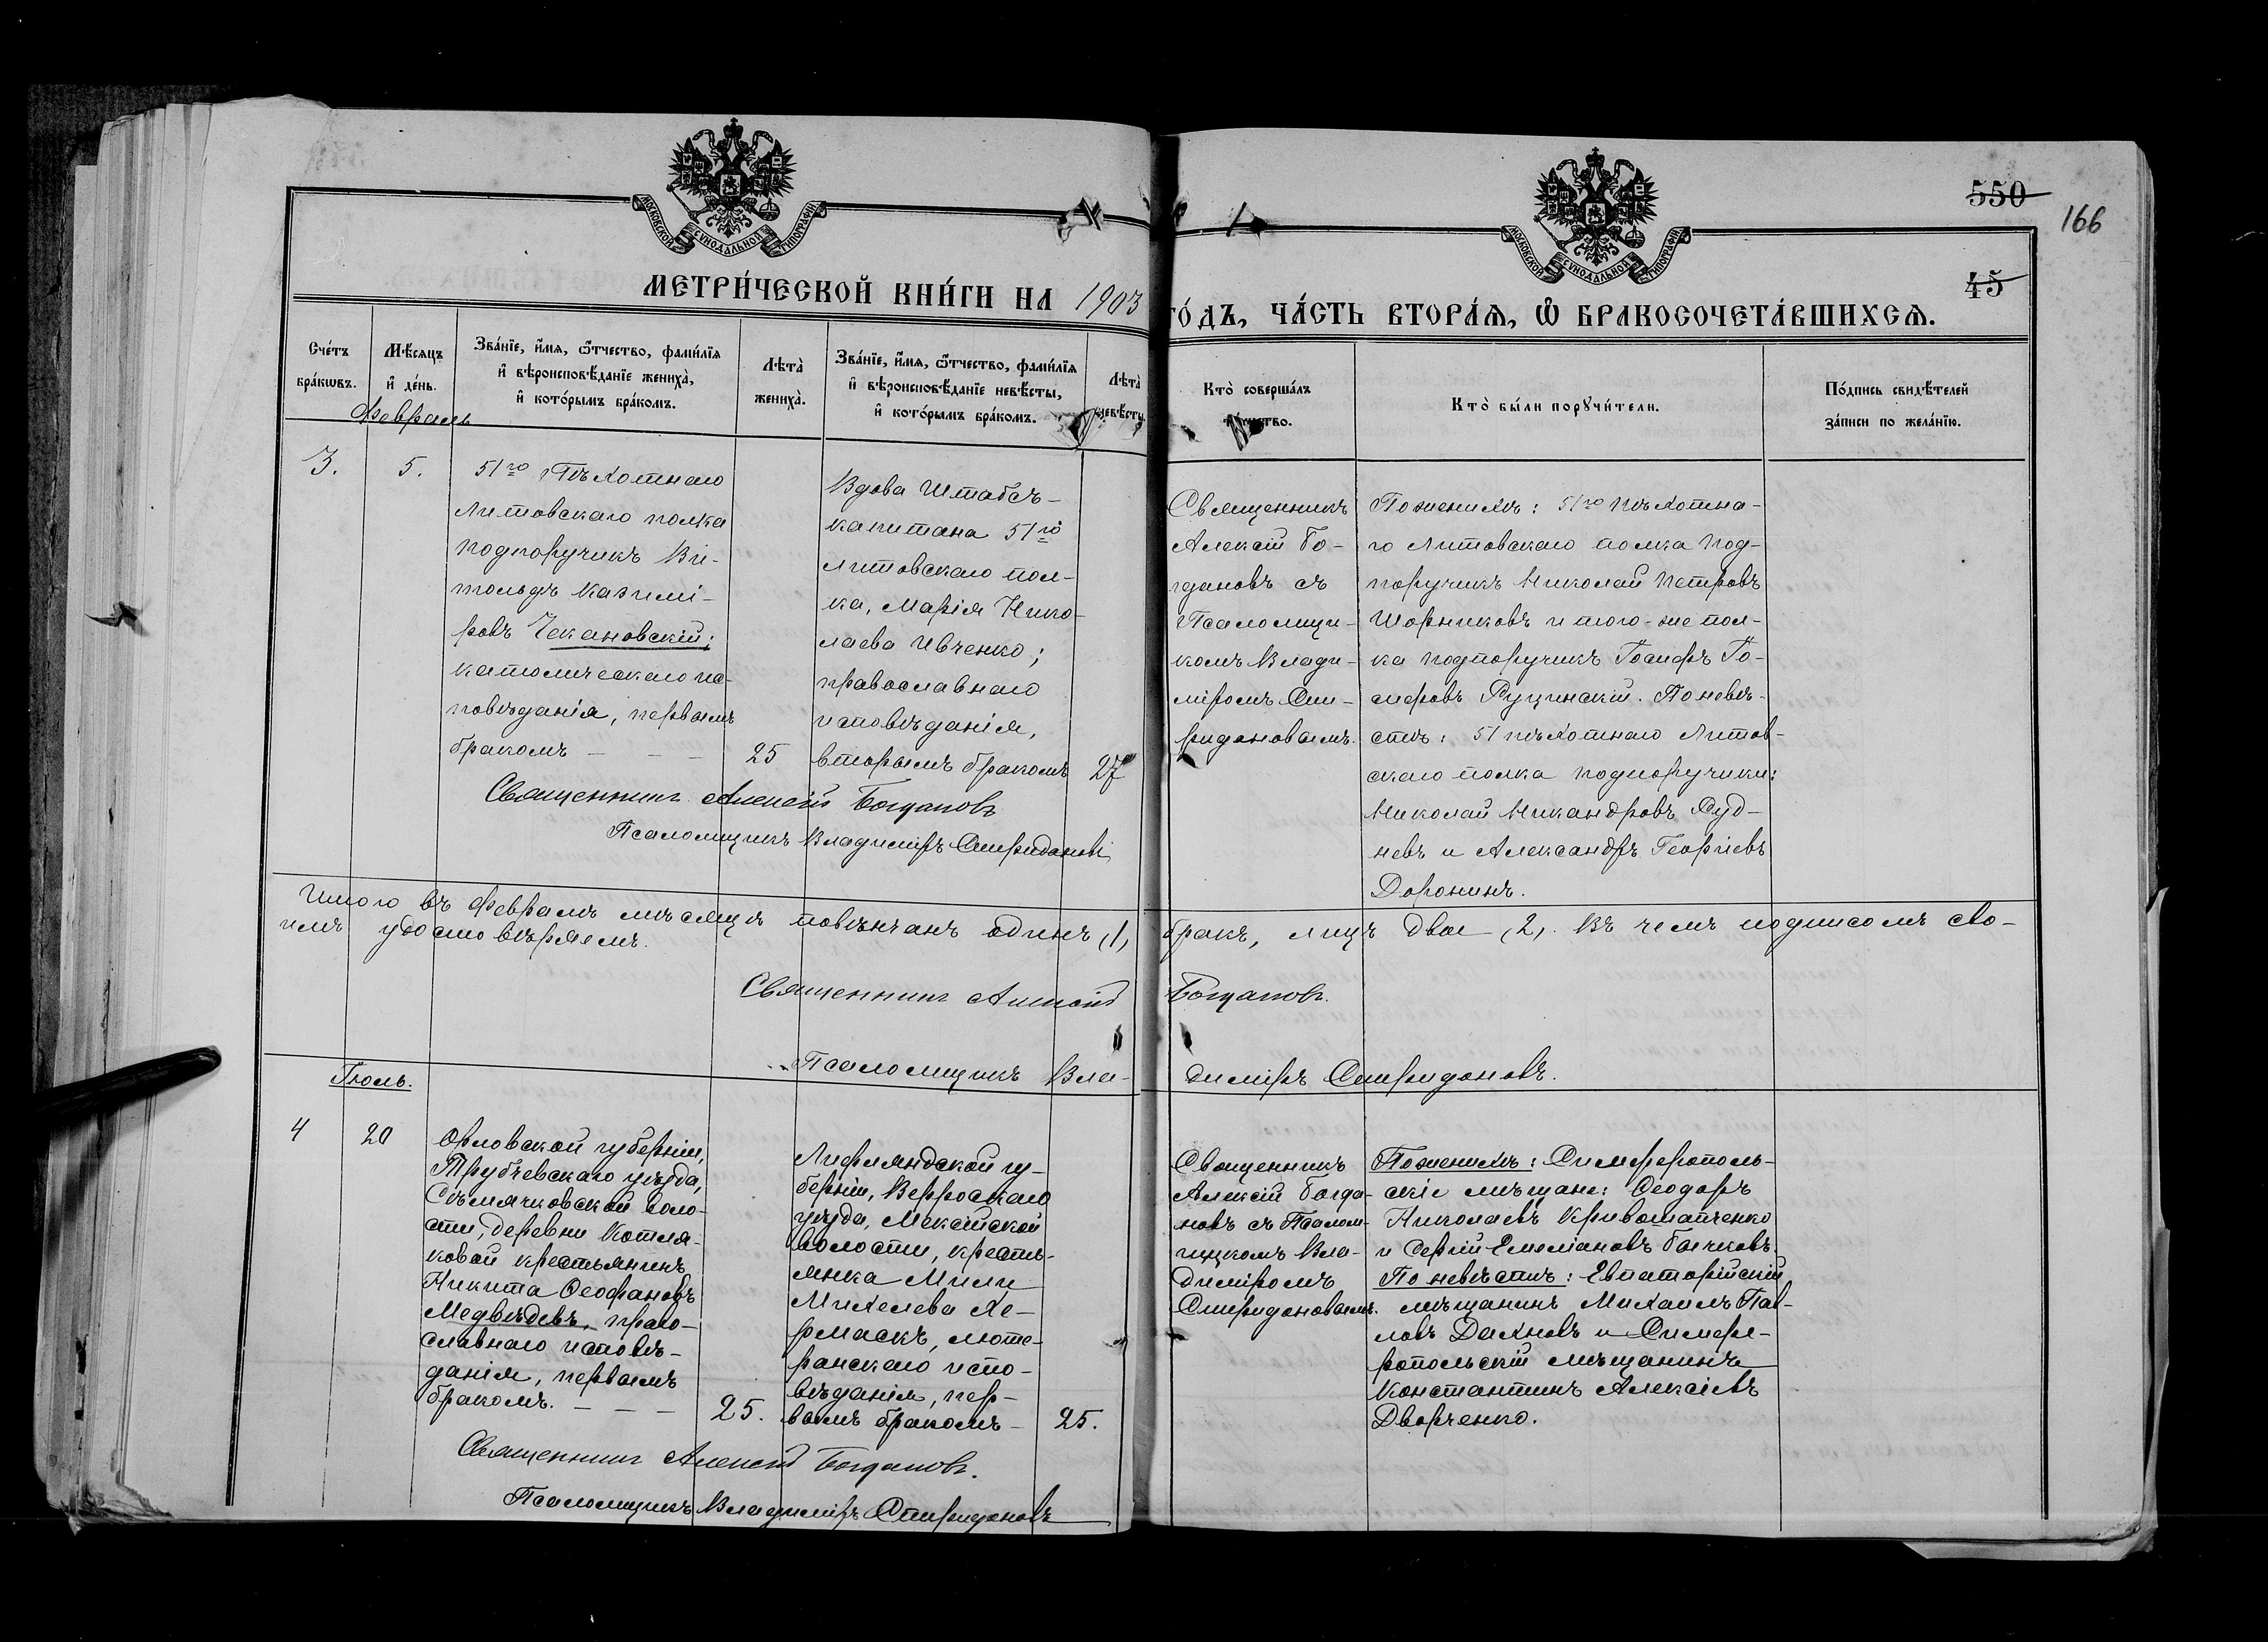 550
166
45
МОСКОВСКОЙ СѴНОДАЛЬНОЙ ТИПОГРАФІИ
МОСКОВСКОЙ СѴНОДАЛЬНОЙ ТИПОГРАФІИ
МЕТРИ́ЧЕСКОЙ КНИ́ГИ НА 1903
ГО́ДЪ, ЧА́СТЬ ВТОРА́Я, Ѿ БРАКОСОЧЕТА́ВШИХСЯ.
Сче́тъ
бра́кѡвъ.
Мѣ́сяцъ
и҆ де́нь.
Зва́нїе, и҆́мя, ѻ҆́тчество, фами́лїя
и҆ вѣроисповѣ́данїе жениха̀,
и҆ кото́рымъ бра́комъ.
Лѣта̀
жениха̀.
Зва́нїе, и҆́мя, ѻ҆́тчество, фами́лїя
и҆ вѣроисповѣ́данїе невѣ́сты,
и҆ кото́рымъ бра́комъ.
Лѣта̀
невѣ́сты
Кто̀ соверша́лъ
Кто̀ бы́ли порꙋчи́тели.
По́дпись свидѣ́телей
за́писи по жела́нїю.
Февраль
3.
5.
51го Пѣхотнаго
Литовскаго полка
подпоручикъ Ви-
тольдъ Казимі-
ровъ Чекановскій;
католическаго ис-
повѣданія, первымъ
бракомъ – – –
25
Вдова Штабсъ-
капитана 51го
Литовскаго пол-
ка, Марія Нико-
лаева Ивченко;
православнаго
исповѣданія,
вторымъ бракомъ
27
Священникъ
Алексій Бо-
гдановъ съ
Псаломщи-
комъ Влади-
міромъ Спи-
ридоновымъ.
По женихѣ: 51го пѣхотна-
го Литовскаго полка под-
поручикъ Николай Петровъ
Шорниковъ и того-же пол-
ка подпоручикъ Іосифъ Іо-
сифовъ Руцинскій. По невѣ-
стѣ: 51 пѣхотнаго Литов-
скаго полка подпоручики:
Николай Никандровъ Руд-
невъ и Александръ Георгіевъ
Доронинъ.
Священникъ Алексій Богдановъ
Псаломщикъ Владиміръ Спиридоновъ
Итого въ Февралѣ мѣсяцѣ повѣнчанъ одинъ (1) бракъ, лицъ двое (2). Въ чемъ подписомъ сво-
имъ удостовѣряемъ.
Священникъ Алексій Богдановъ.
Псаломщикъ Владиміръ Спиридоновъ.
Іюль.
4
20
Орловской губерніи,
Трубчевскаго уѣзда,
Сѣмячковской воло-
сти, деревни Котля-
ковой крестьянинъ
Никита Ѳеофановъ
Медвѣдевъ, право-
славнаго исповѣ-
данія, первымъ
бракомъ. – – –
25.
Лифляндской гу-
берніи, Верроскаго
уѣзда, Мексійской
волости, кресть-
янка Мили
Михелева Хе-
рмаскъ, люте-
ранскаго испо-
вѣданія, пер-
вымъ бракомъ –
25.
Священникъ
Алексій Богда-
новъ съ Псалом-
щикомъ Вла-
диміромъ
Спиридоновымъ.
По женихѣ: Симферополь-
скіе мѣщане: Ѳеодоръ
Николаевъ Кривошапченко
и Сергій Емеліановъ Бычковъ.
По невѣстѣ: Евпаторійскій
мѣщанинъ Михаилъ Пав-
ловъ Дахновъ и Симфе-
ропольскій мѣщанинъ
Константинъ Алексіевъ
Дворченко.
Священникъ Алексій Богдановъ.
Псаломщикъ Владиміръ Спиридоновъ